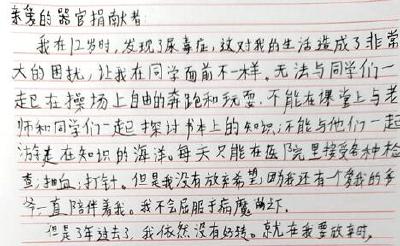 亲爱的器官捐献者:
我在12岁时,发现了尿毒症,这对我的生活造成了非常
大的困扰,让我在同学面前不一样。无法与同学们一
起在操场上自由的奔跑和玩耍,不能在课堂上与老
师和同学们一起探讨书本上的知识,不能与他们一起
游走在知识的海洋。每天只能在医院里接受各种检
查,抽血,打针。但是我没有放弃希望,因为我还有个爱我的爷
爷一直陪伴着我。我不会屈服于病魔之下。
但是3年过去了,我依然没有好转。就在我要放弃时,